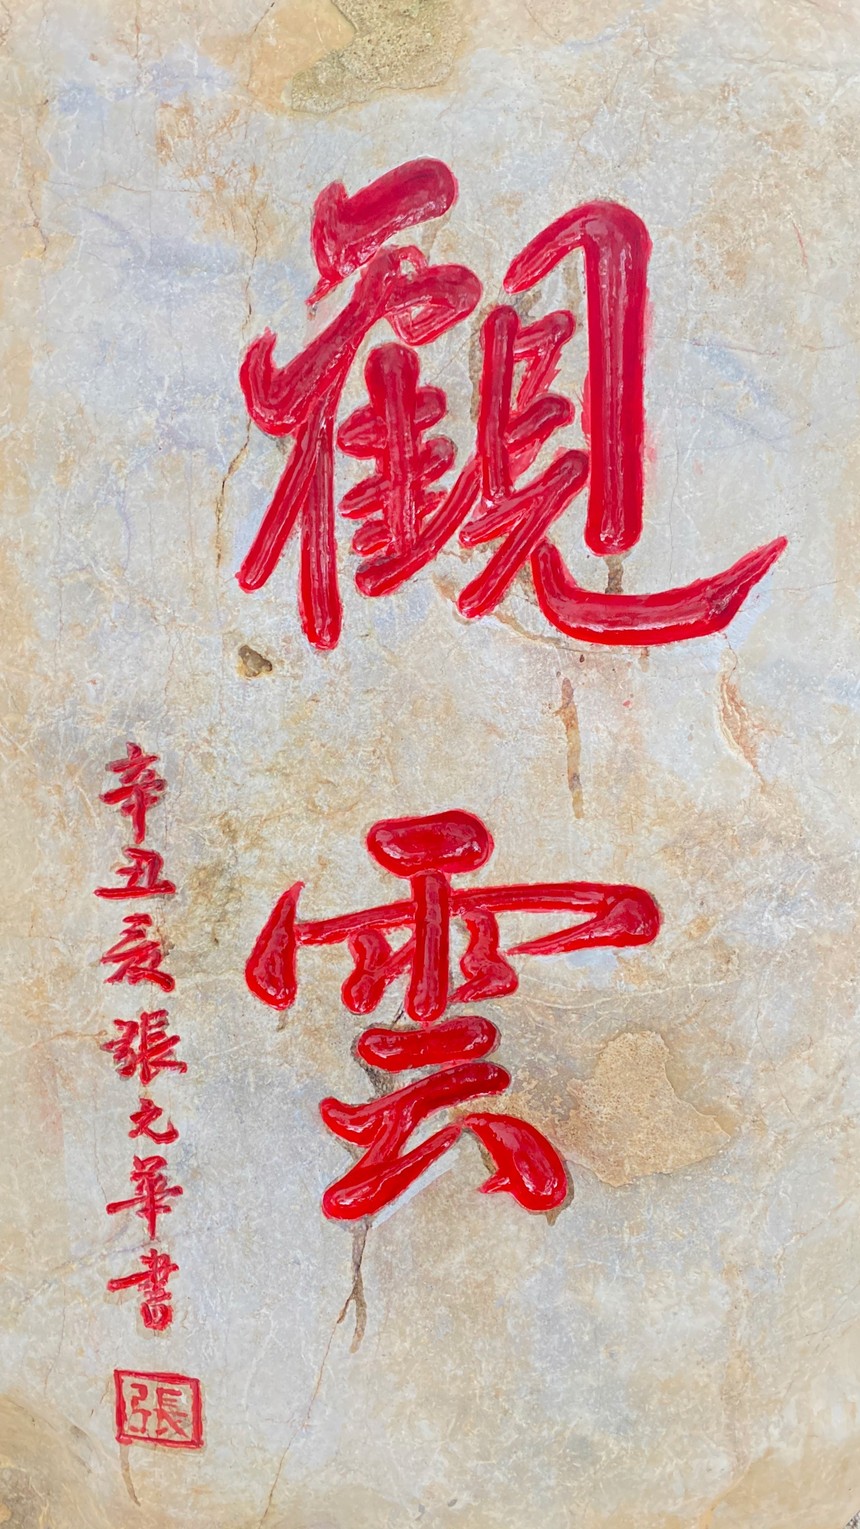 觀雲
辛丑亥張元華書
張